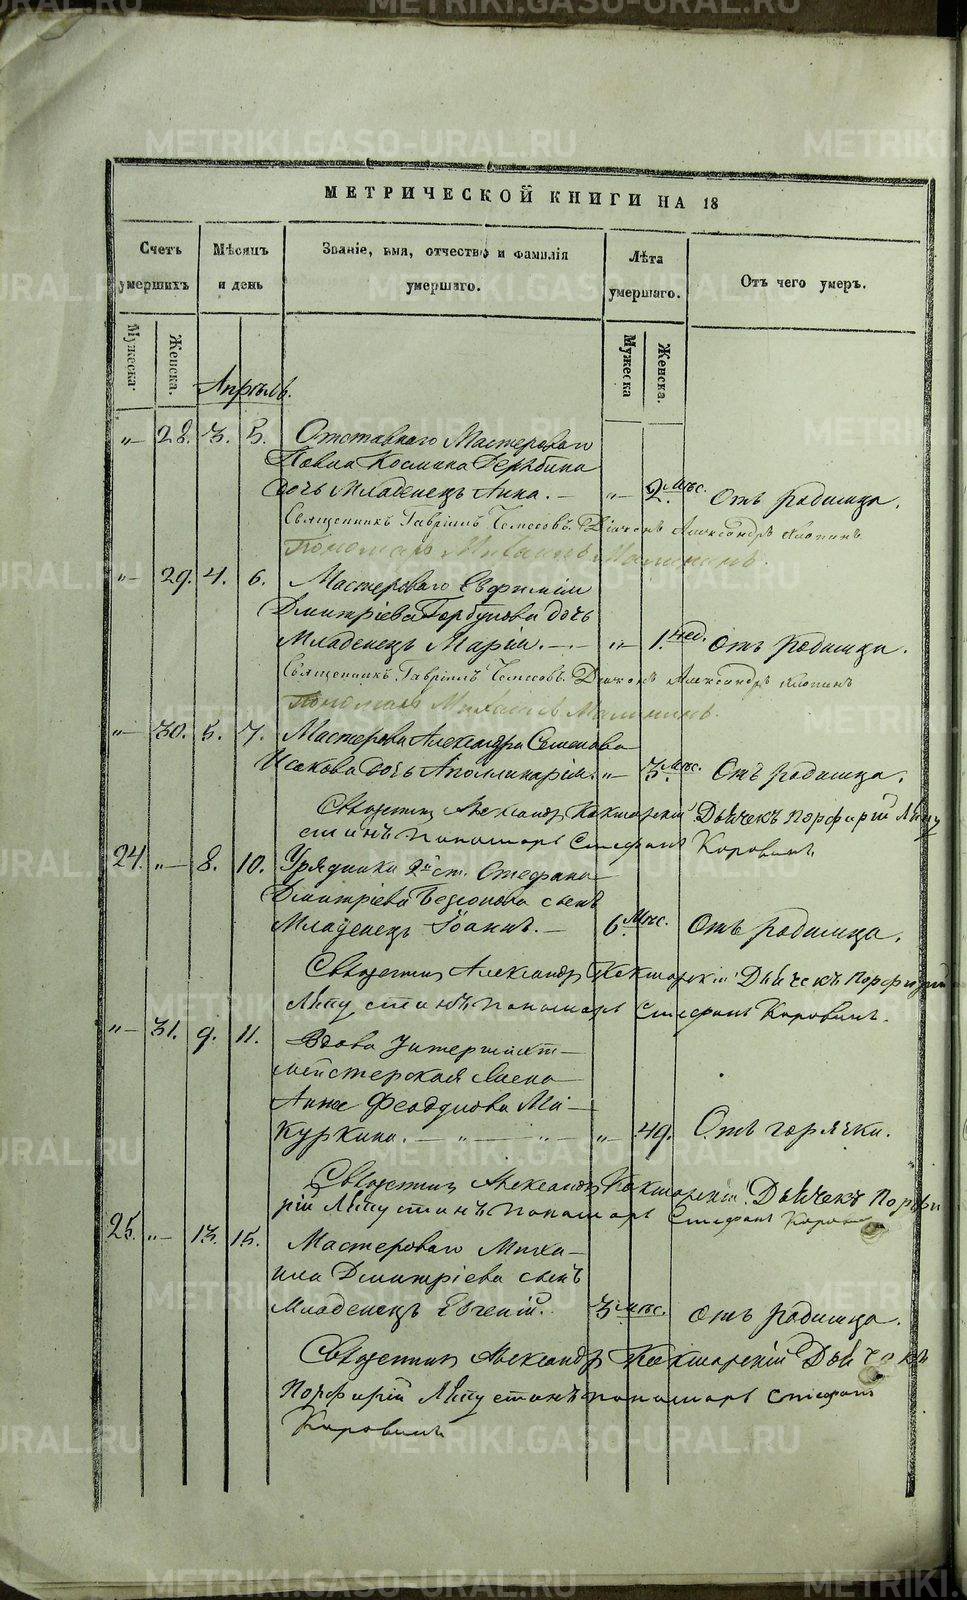 МЕТРИЧЕСКОЙ КНИГИ НА 18
Счетъ умершихъ
Мѣсяцъ и день
Званіе, имя, отчество и фамилія умершаго.
Лѣта умершаго.
Отъ чего умеръ.
Мужеска.
Женска.
Мужеска
Женска.
Апрѣль.
„— 28. 3. 5. Отставнаго Мастероваго
Павла Космина
дочь Младенецъ Анна. — „— 2 мѣс. Отъ родимца.
Священникъ Гавріилъ Діаконъ Александръ
Пономарь Михаилъ
„— 29. 4. 6. Мастероваго Евфимія
Дмитріева Горбунова дочь
Младенецъ Марія. — „— 1. нед. Отъ родимца.
Священникъ Гавріилъ Діаконъ Александръ
Пономарь Михаилъ
„— 30. 5. 7. Мастерова Александра Семенова
Исакова дочь Аполлинарія. „— 3 мѣс. Отъ родимца.
Священникъ Александръ Дьячекъ Порфирій Лепу
стинъ пономарь Стефанъ Коровинъ
24. „— 8. 10. Урядника 2й ст. Стефана
Дмитріева сынъ
Младенецъ Іоаннъ. — 6 мѣс. Отъ родимца.
Священникъ Александръ Дьячекъ Порфирій
Лепустинъ пономарь Стефанъ Коровинъ.
„— 31. 9. 11. Вдова Унтершихт—
мейстерская жена
Анна Федулова Ма—
куркина. — „ — „ — „— 49. Отъ горячки.
Священникъ Александръ Дьячекъ Порфи
рій Лепустинъ пономарь Стефанъ Коровинъ
25. „— 13. 15. Мастероваго Миха—
ила Дмитріева сынъ
Младенецъ Евгеній. 3 мѣс. Отъ родимца.
Священникъ Александръ Дьячекъ
Порфирій Лепустинъ пономарь Стефанъ
Коровинъ
METRIKI.GASO-URAL.RU